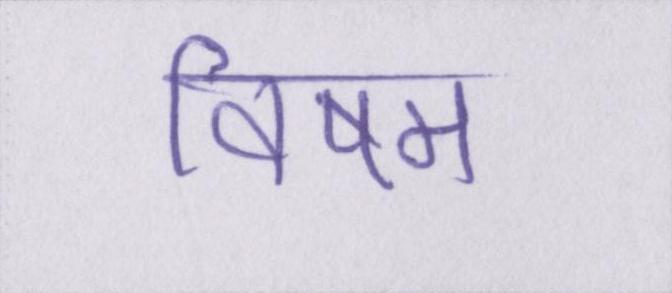 विषम